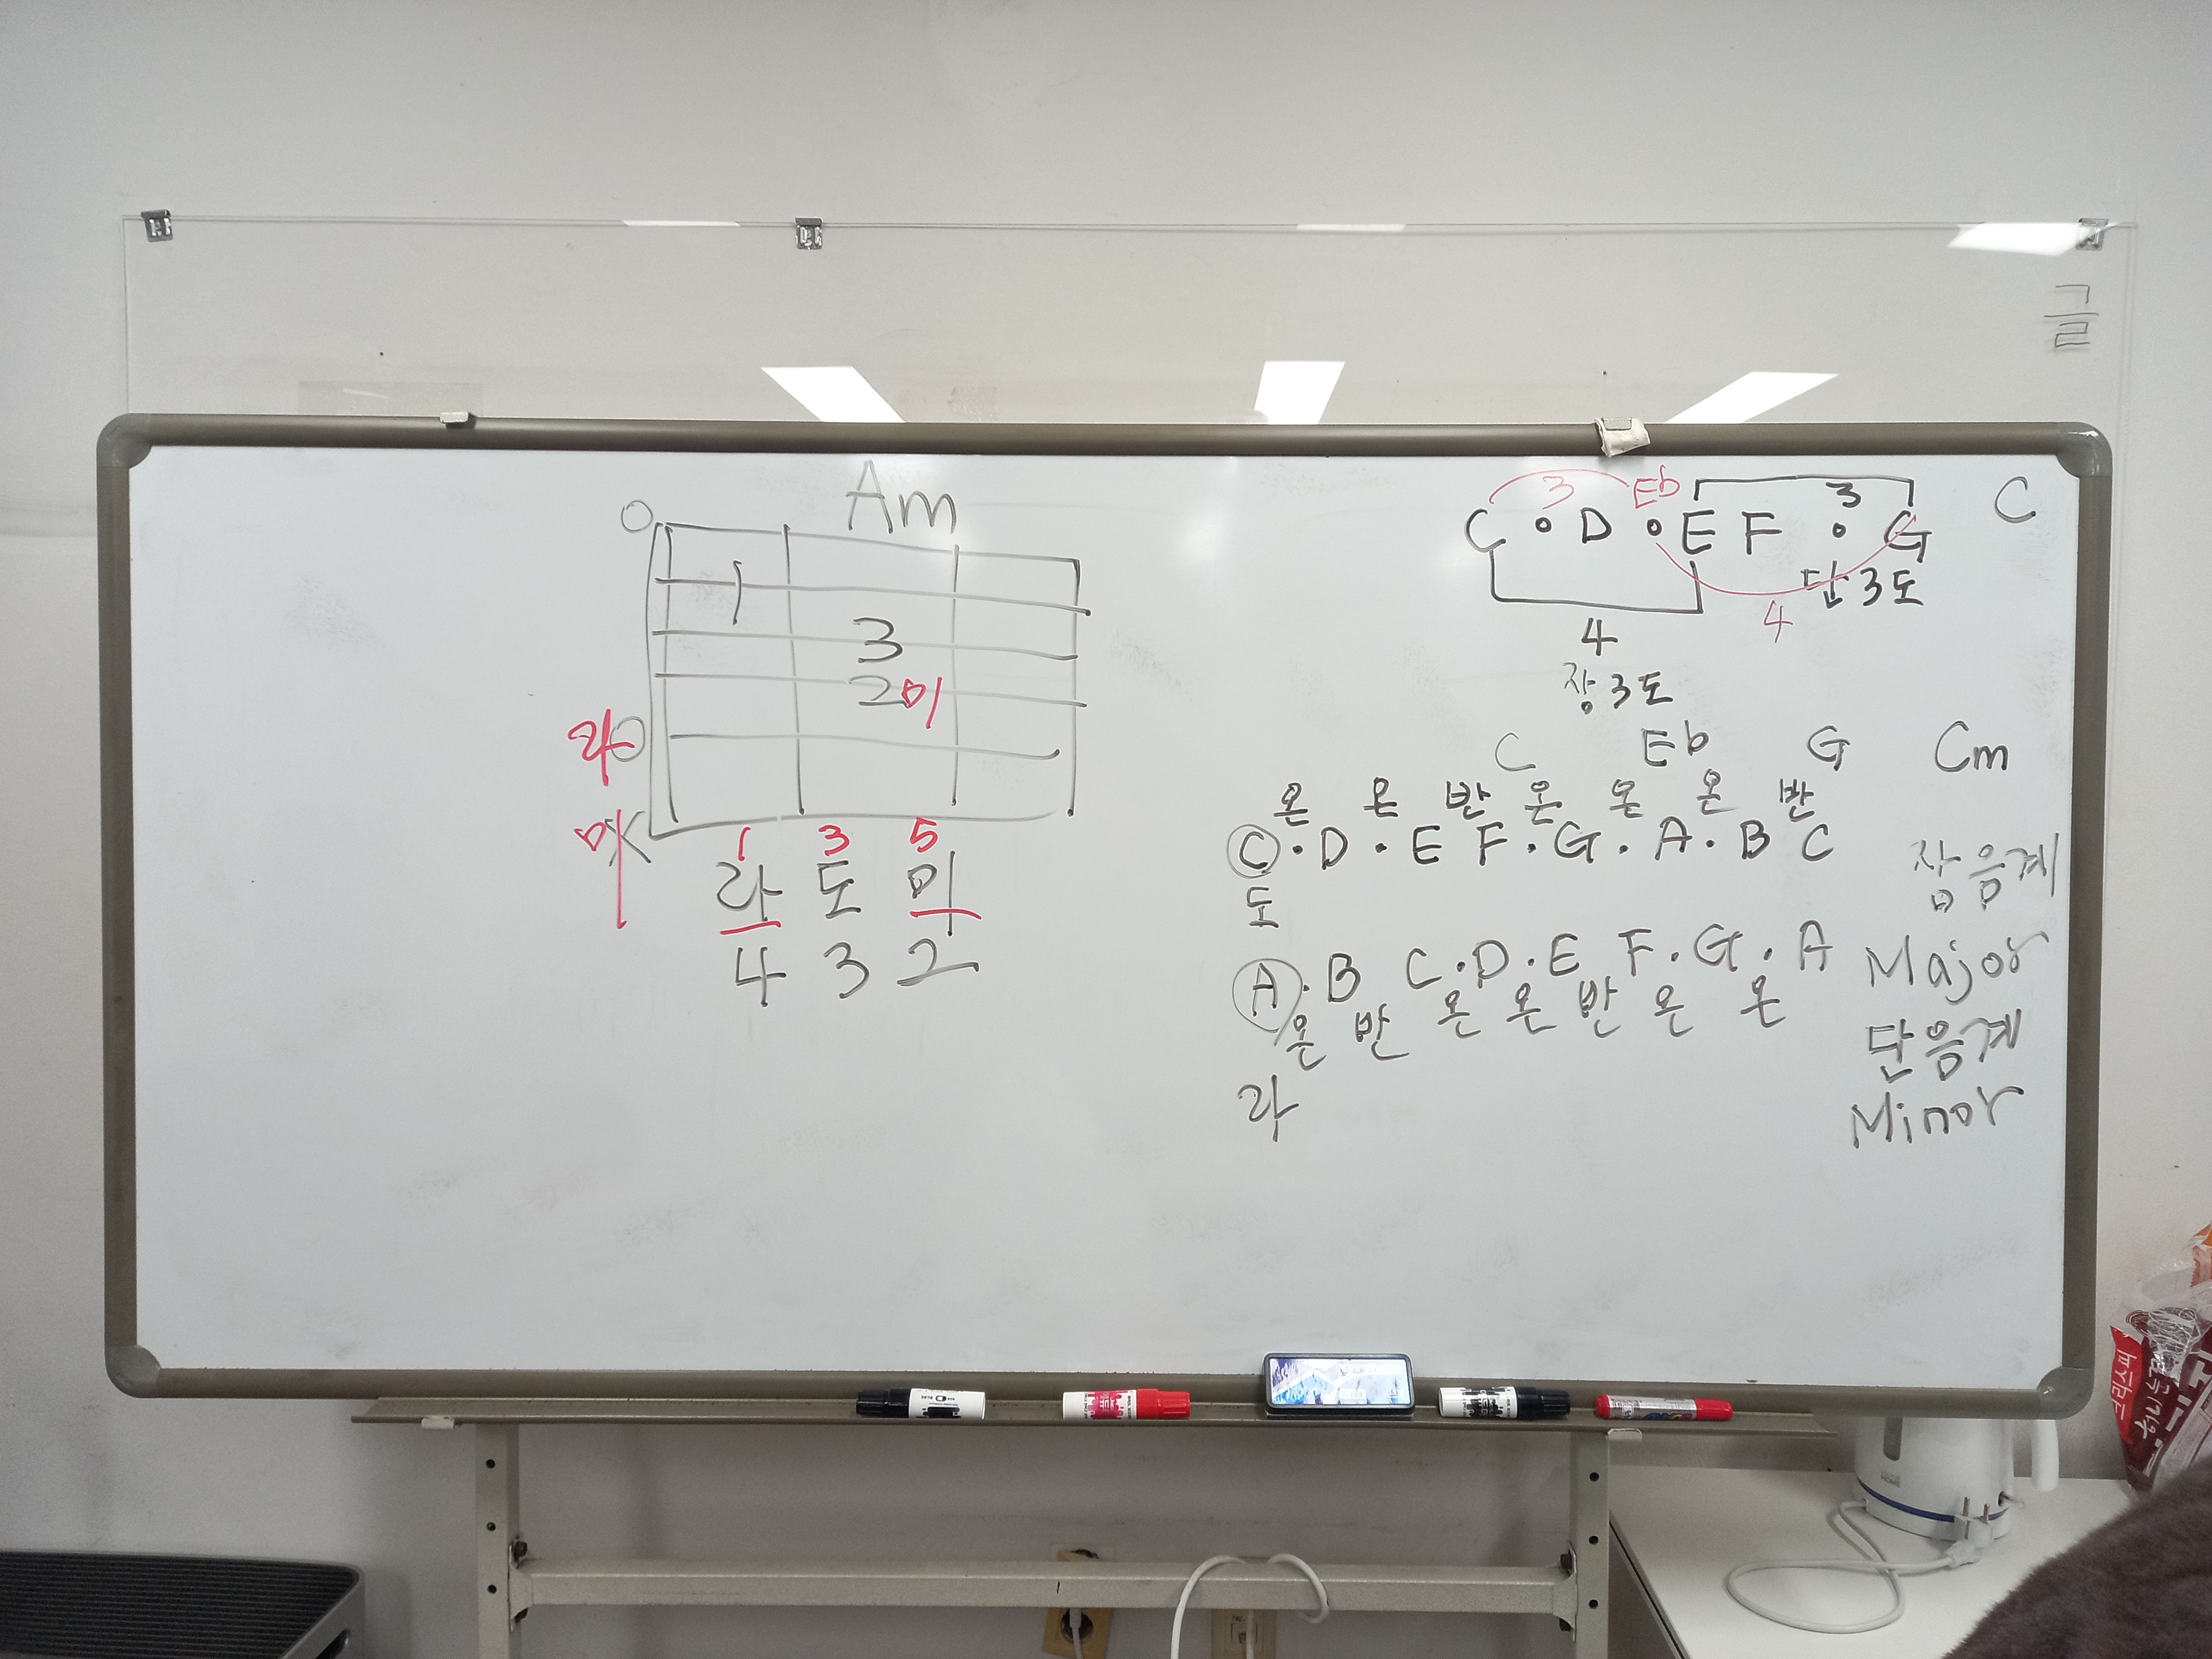 글
Am
O
1
3
2 미
라 O
미 X
1 3 5
라 도 미
4 3 2
3 Eb 3
C • D • E F • G C
단3도
4 4
장3도
C Eb G Cm
온 온 반 온 온 온 반
C • D • E F • G • A • B C
도
장음계
A • B C • D • E F • G • A Major
온 반 온 온 반 온 온
단음계
라
Minor